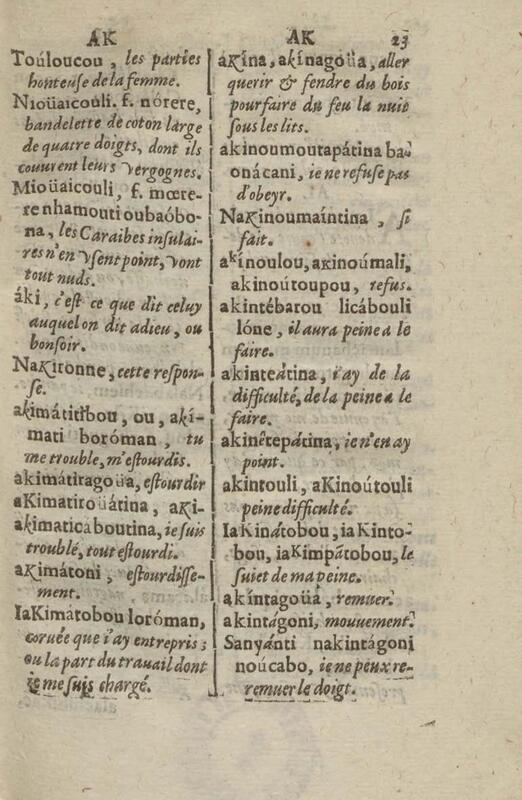 AK
AK 23
Toúloucou, les parties
honteuse de la femme.
Nioüaicouli. f. nórere,
bandelette de coton large
de quatre doigts, dont ils
couurent leurs vergognes.
Mioüaicouli, f. mœre-
renhamouti oubaóbo-
na, les Caraibes insulai-
res n'en vsent point, vont
tout nuds.
áki, c'est ce que dit celuy
auquel on dit adieu, ou
bonsoir.
Nakironne, cette respon-
se.
akimátitibou, ou, akí-
mati boróman, tu
me trouble, m'estourdis.
akimátiragoüa, estourdir
aKimatiroüátina, aKi-
akimaticaboutina, ie suis
troublé, tout estourdi.
aKimátoni, estourdisse-
ment.
IaKimátobou loróman,
coruée que i'ay entrepris;
ou la part du trauail dont
ie me suis chargé.
áKína, akínagoüa, aller
querir & fendre du bois
pour faire du feu la nuit
sous les lits.
akinoumoutapátina ba-
onácani, ie ne refuse pas
d'obeyr.
NaKinoumaíntina, si
fait.
akínoulou, aKinoúmali,
akinoútoupou, refus.
akintébarou licábouli
lóne, il aura peine a le
faire.
akinteátina, i'ay de la
difficulté, de la peine a le
faire.
akinêtepátina, ie n'en ay
point.
akintouli, aKinoútouli
peine difficulté.
IaKinátobou, iaKinto-
bou, iaKimpâtobou, le
suiet de ma peine.
akíntagoüa, remuer.
akintágoni, mouuement.
Sanyánti nakintágoni
noúcabo, ie ne peux re-
remuer le doigt.